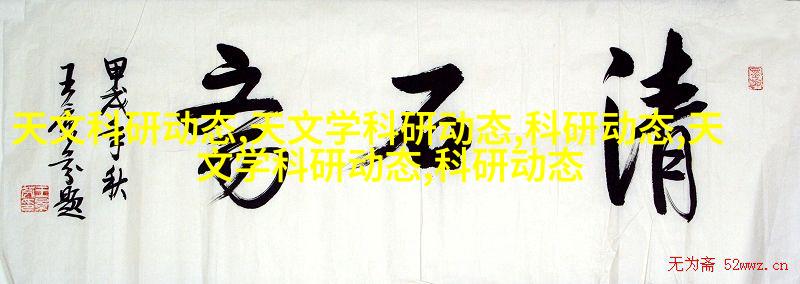 清石
甲戌年秋
王题
天文科研动态,天文学科研动态,科研动态,天
文学科研动态,科研动态
无为斋 52wwz.cn